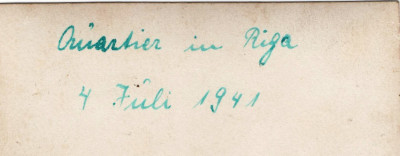 Quartier in Riga
4 Juli 1941